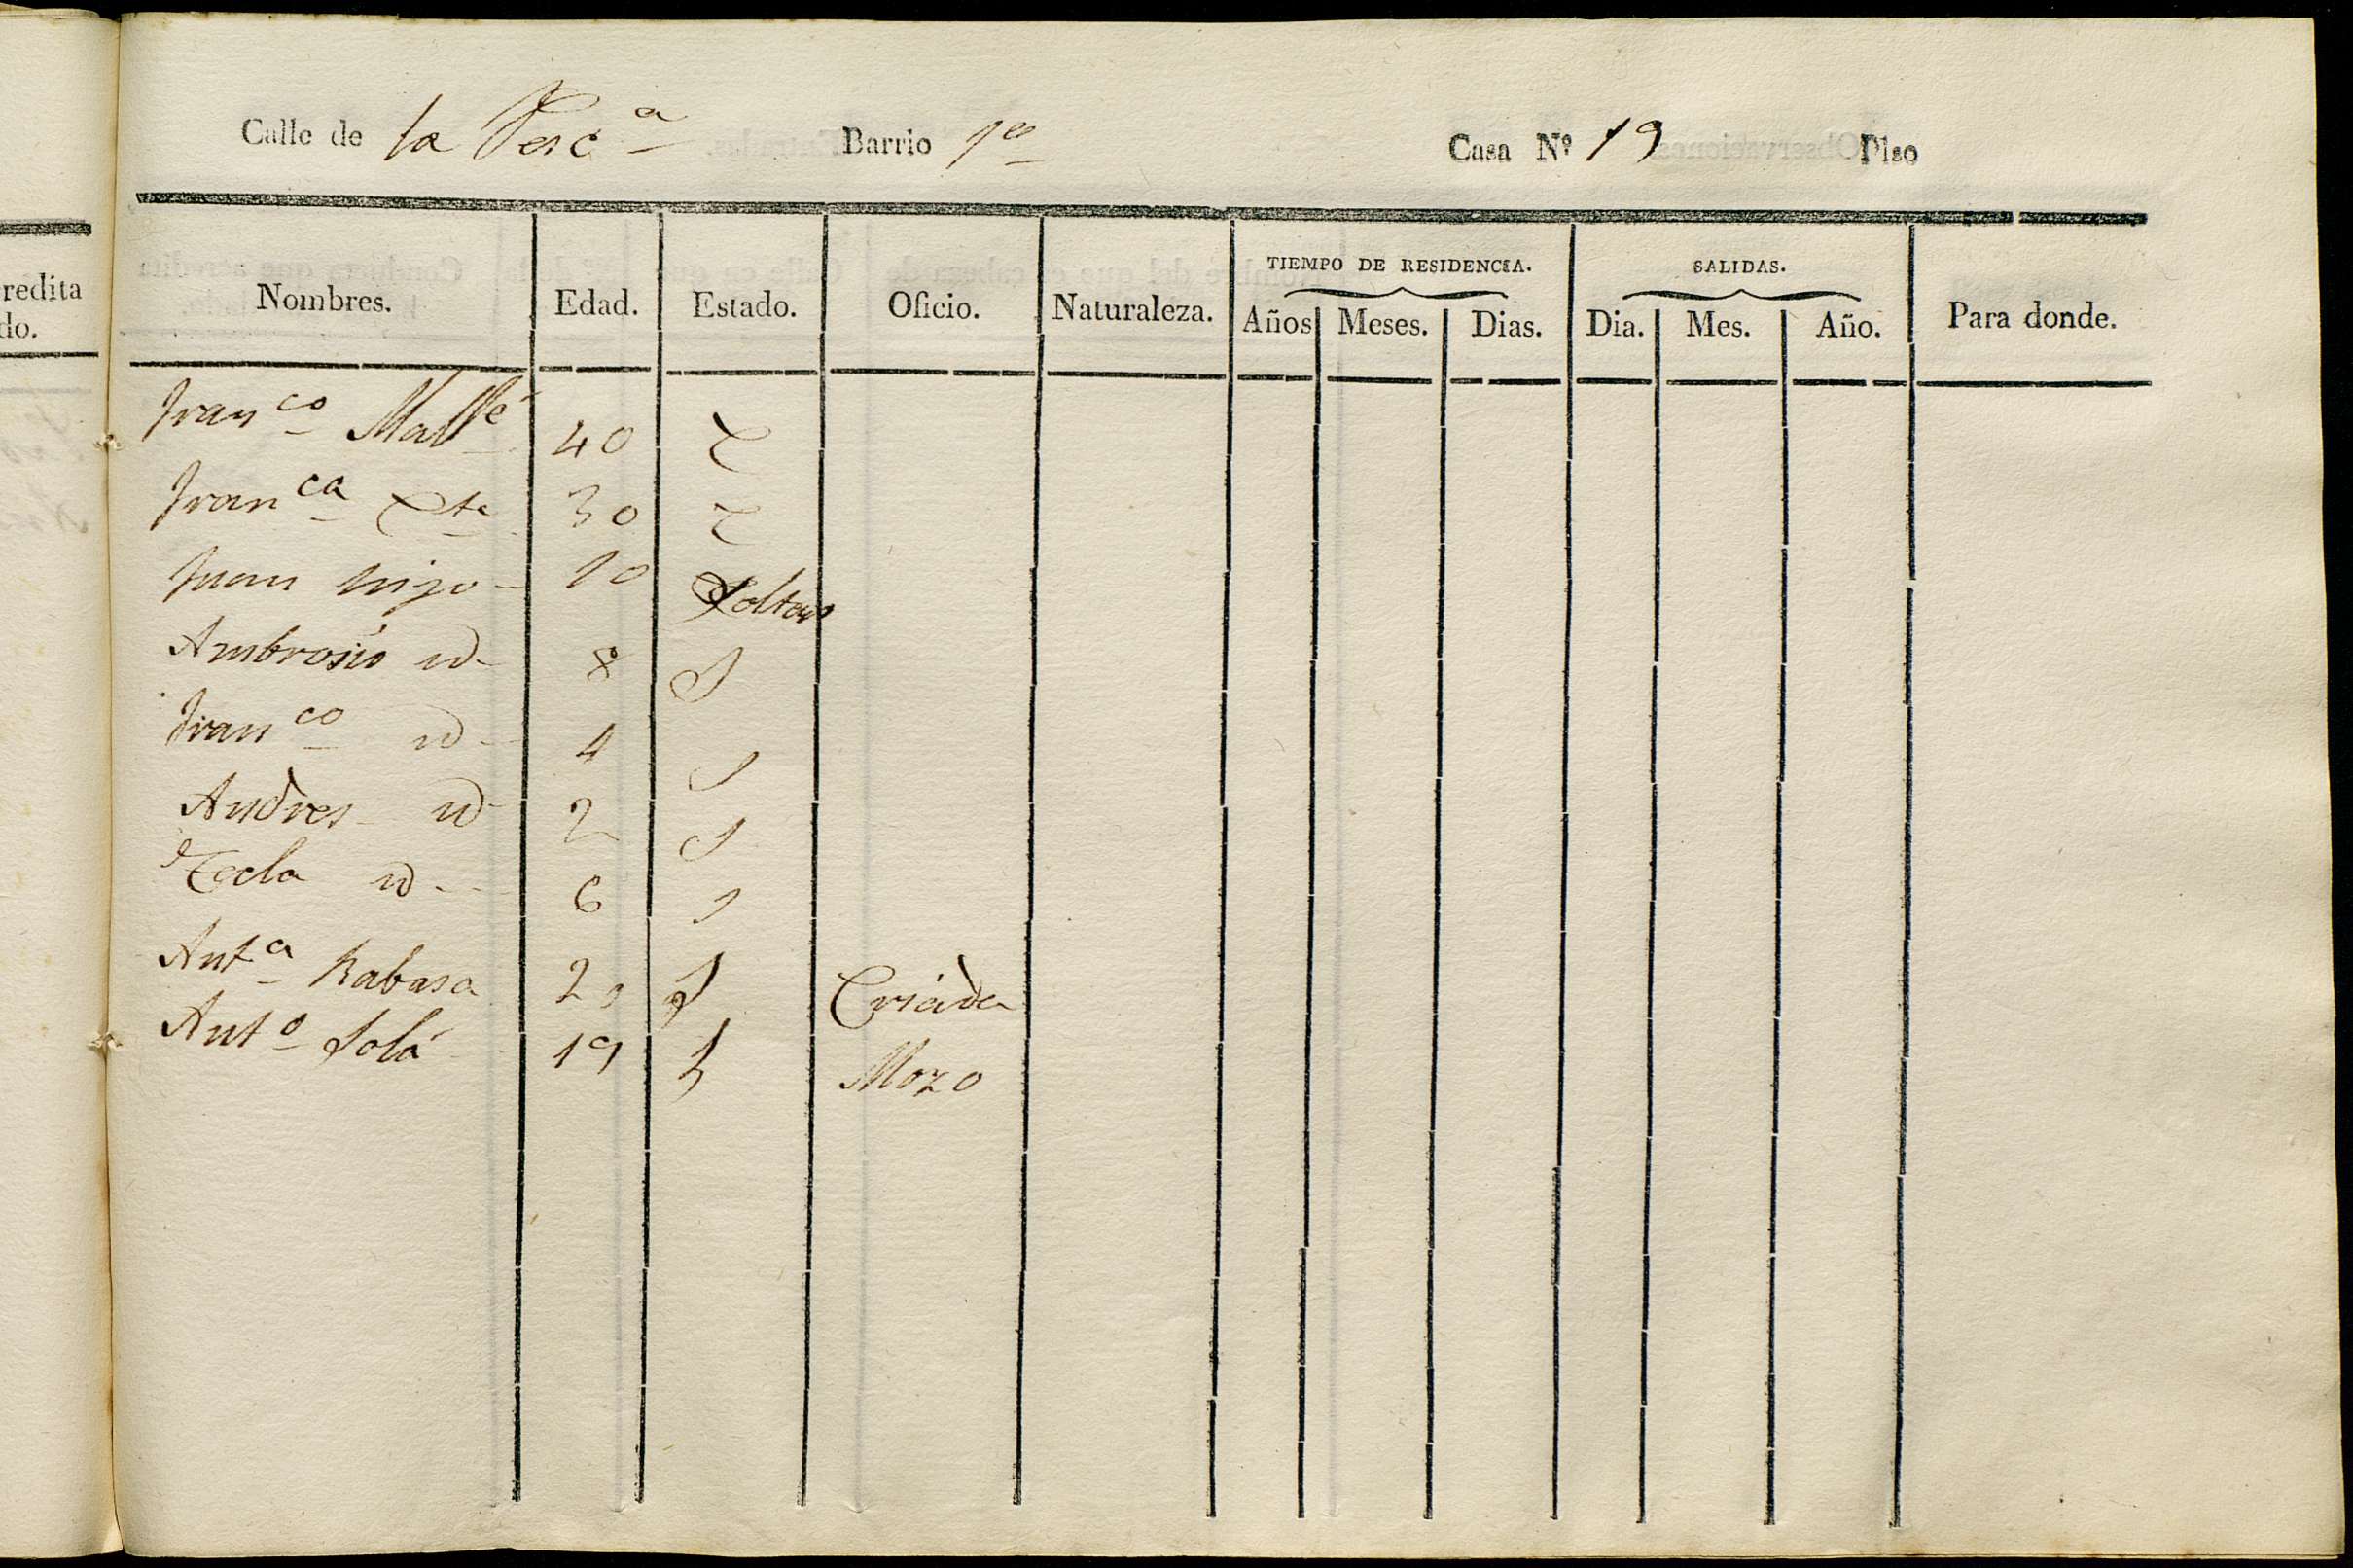 Calle de la Pesc.ª Barrio 1º Casa Nº 19 Piso
redita
do.
Nombres. Edad. Estado. Oficio. Naturaleza. TIEMPO DE RESIDENCIA. Años Meses. Dias. SALIDAS. Dia. Mes. Año. Para donde.
Franco Mallé 40 C
Franca 30 C
Juan hijo 10 Soltero
Ambrosio id 8 S
Franco id 4 S
Andres id 2 S
Tecla id 6 S
Anta Rabasa 20 S Criada
Anto Solá 19 S Mozo